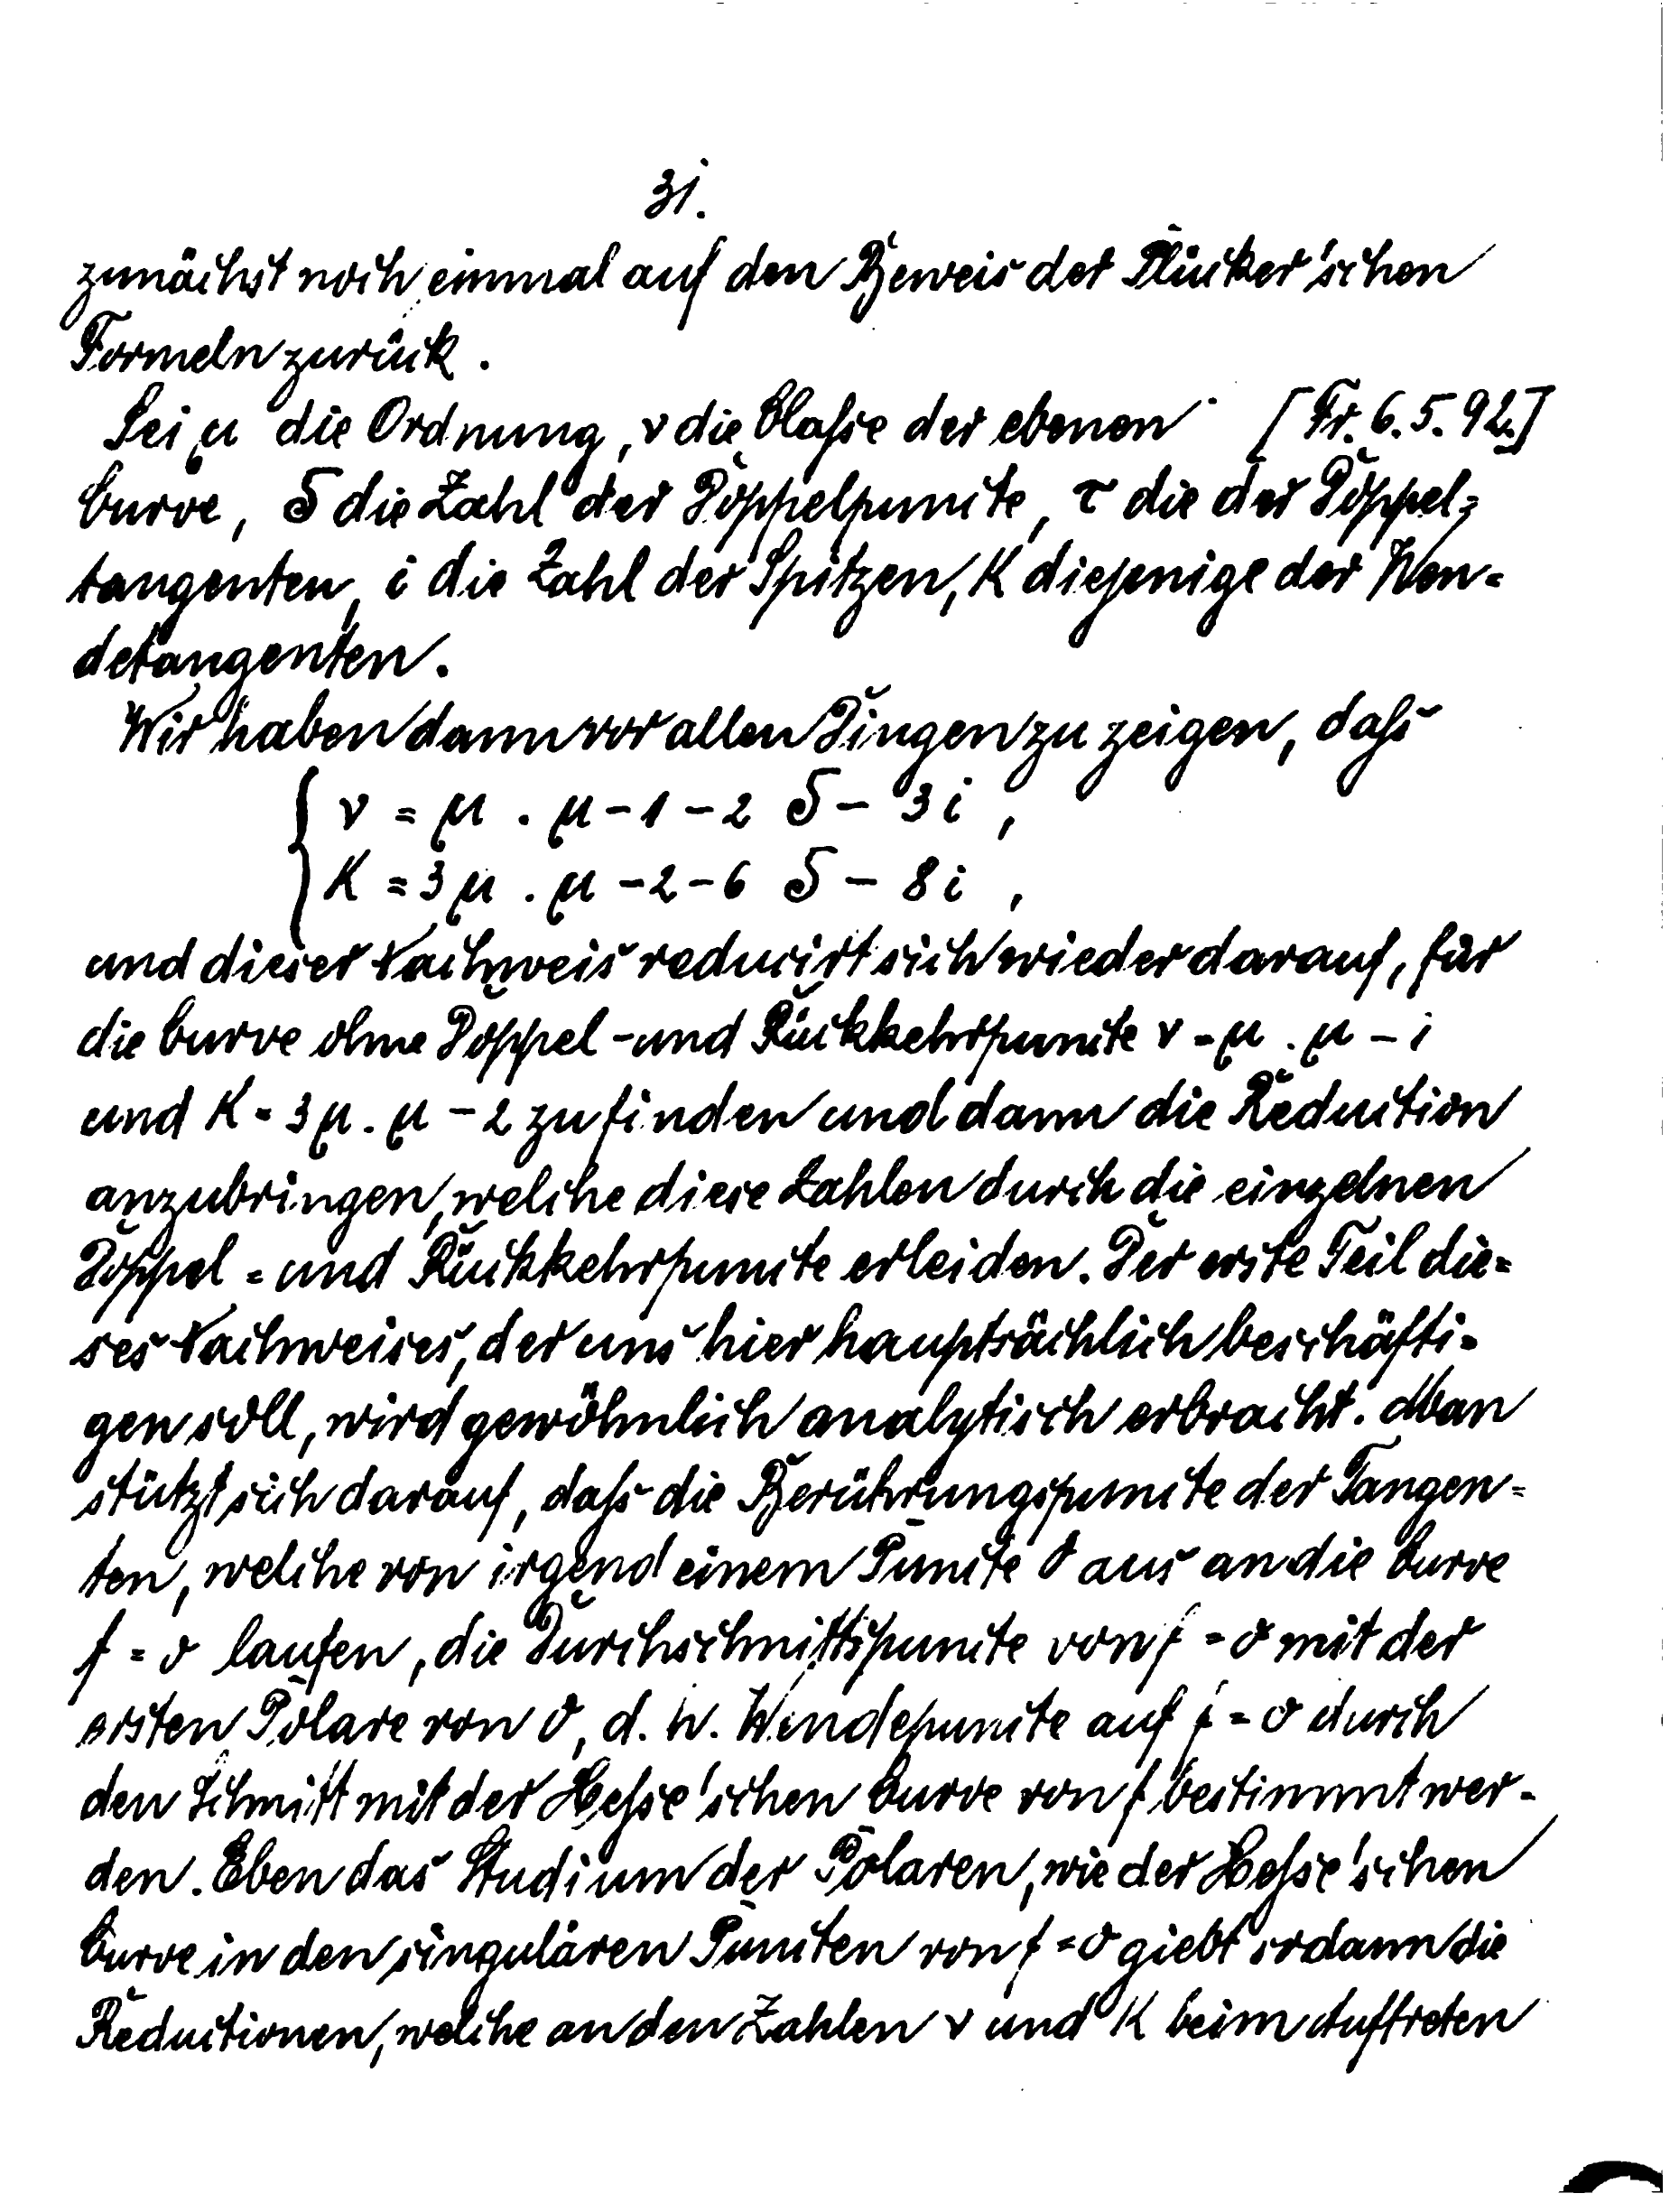 31.
zunächst noch einmal auf den Beweis der Plücker'schen
Formeln zurück.
Sei μ die Ordnung, ν die Classe der ebenen [Fr. 6. 5. 92.]
Curve, δ die Zahl der Doppelpuncte, τ die der Doppel=
tangenten, i die Zahl der Spitzen, K diejenige der Wen=
detangenten.
Wir haben dann vor allen Dingen zu zeigen, daß
{ ν = μ . μ - 1 - 2 δ - 3 i ,
K = 3 μ . μ - 2 - 6 δ - 8 i ,
und dieser Nachweis reducirt sich wieder darauf, für
die Curve ohne Doppel - und Rückkehrpuncte ν = μ . μ - 1
und K = 3 μ . μ - 2 zu finden und dann die Reduction
anzubringen, welche diese Zahlen durch die einzelnen
Doppel = und Rückkehrpuncte erleiden. Der erste Teil die=
ses Nachweises, der uns hier hauptsächlich beschäfti=
gen soll, wird gewöhnlich analytisch erbracht. Man
stützt sich darauf, daß die Berührungspuncte der Tangen=
ten, welche von irgend einem Puncte O aus an die Curve
f = o laufen, die Durchschnittspuncte von f = o mit der
ersten Polare von O, d. h. Wendepuncte auf f = o durch
den Schnitt mit der Hesse'schen Curve von f bestimmt wer-
den. Eben das Studium der Polaren, wie der Hesse'schen
Curve in den singulären Puncten von f = o giebt sodann die
Reductionen, welche an den Zahlen ν und K beim Auftreten